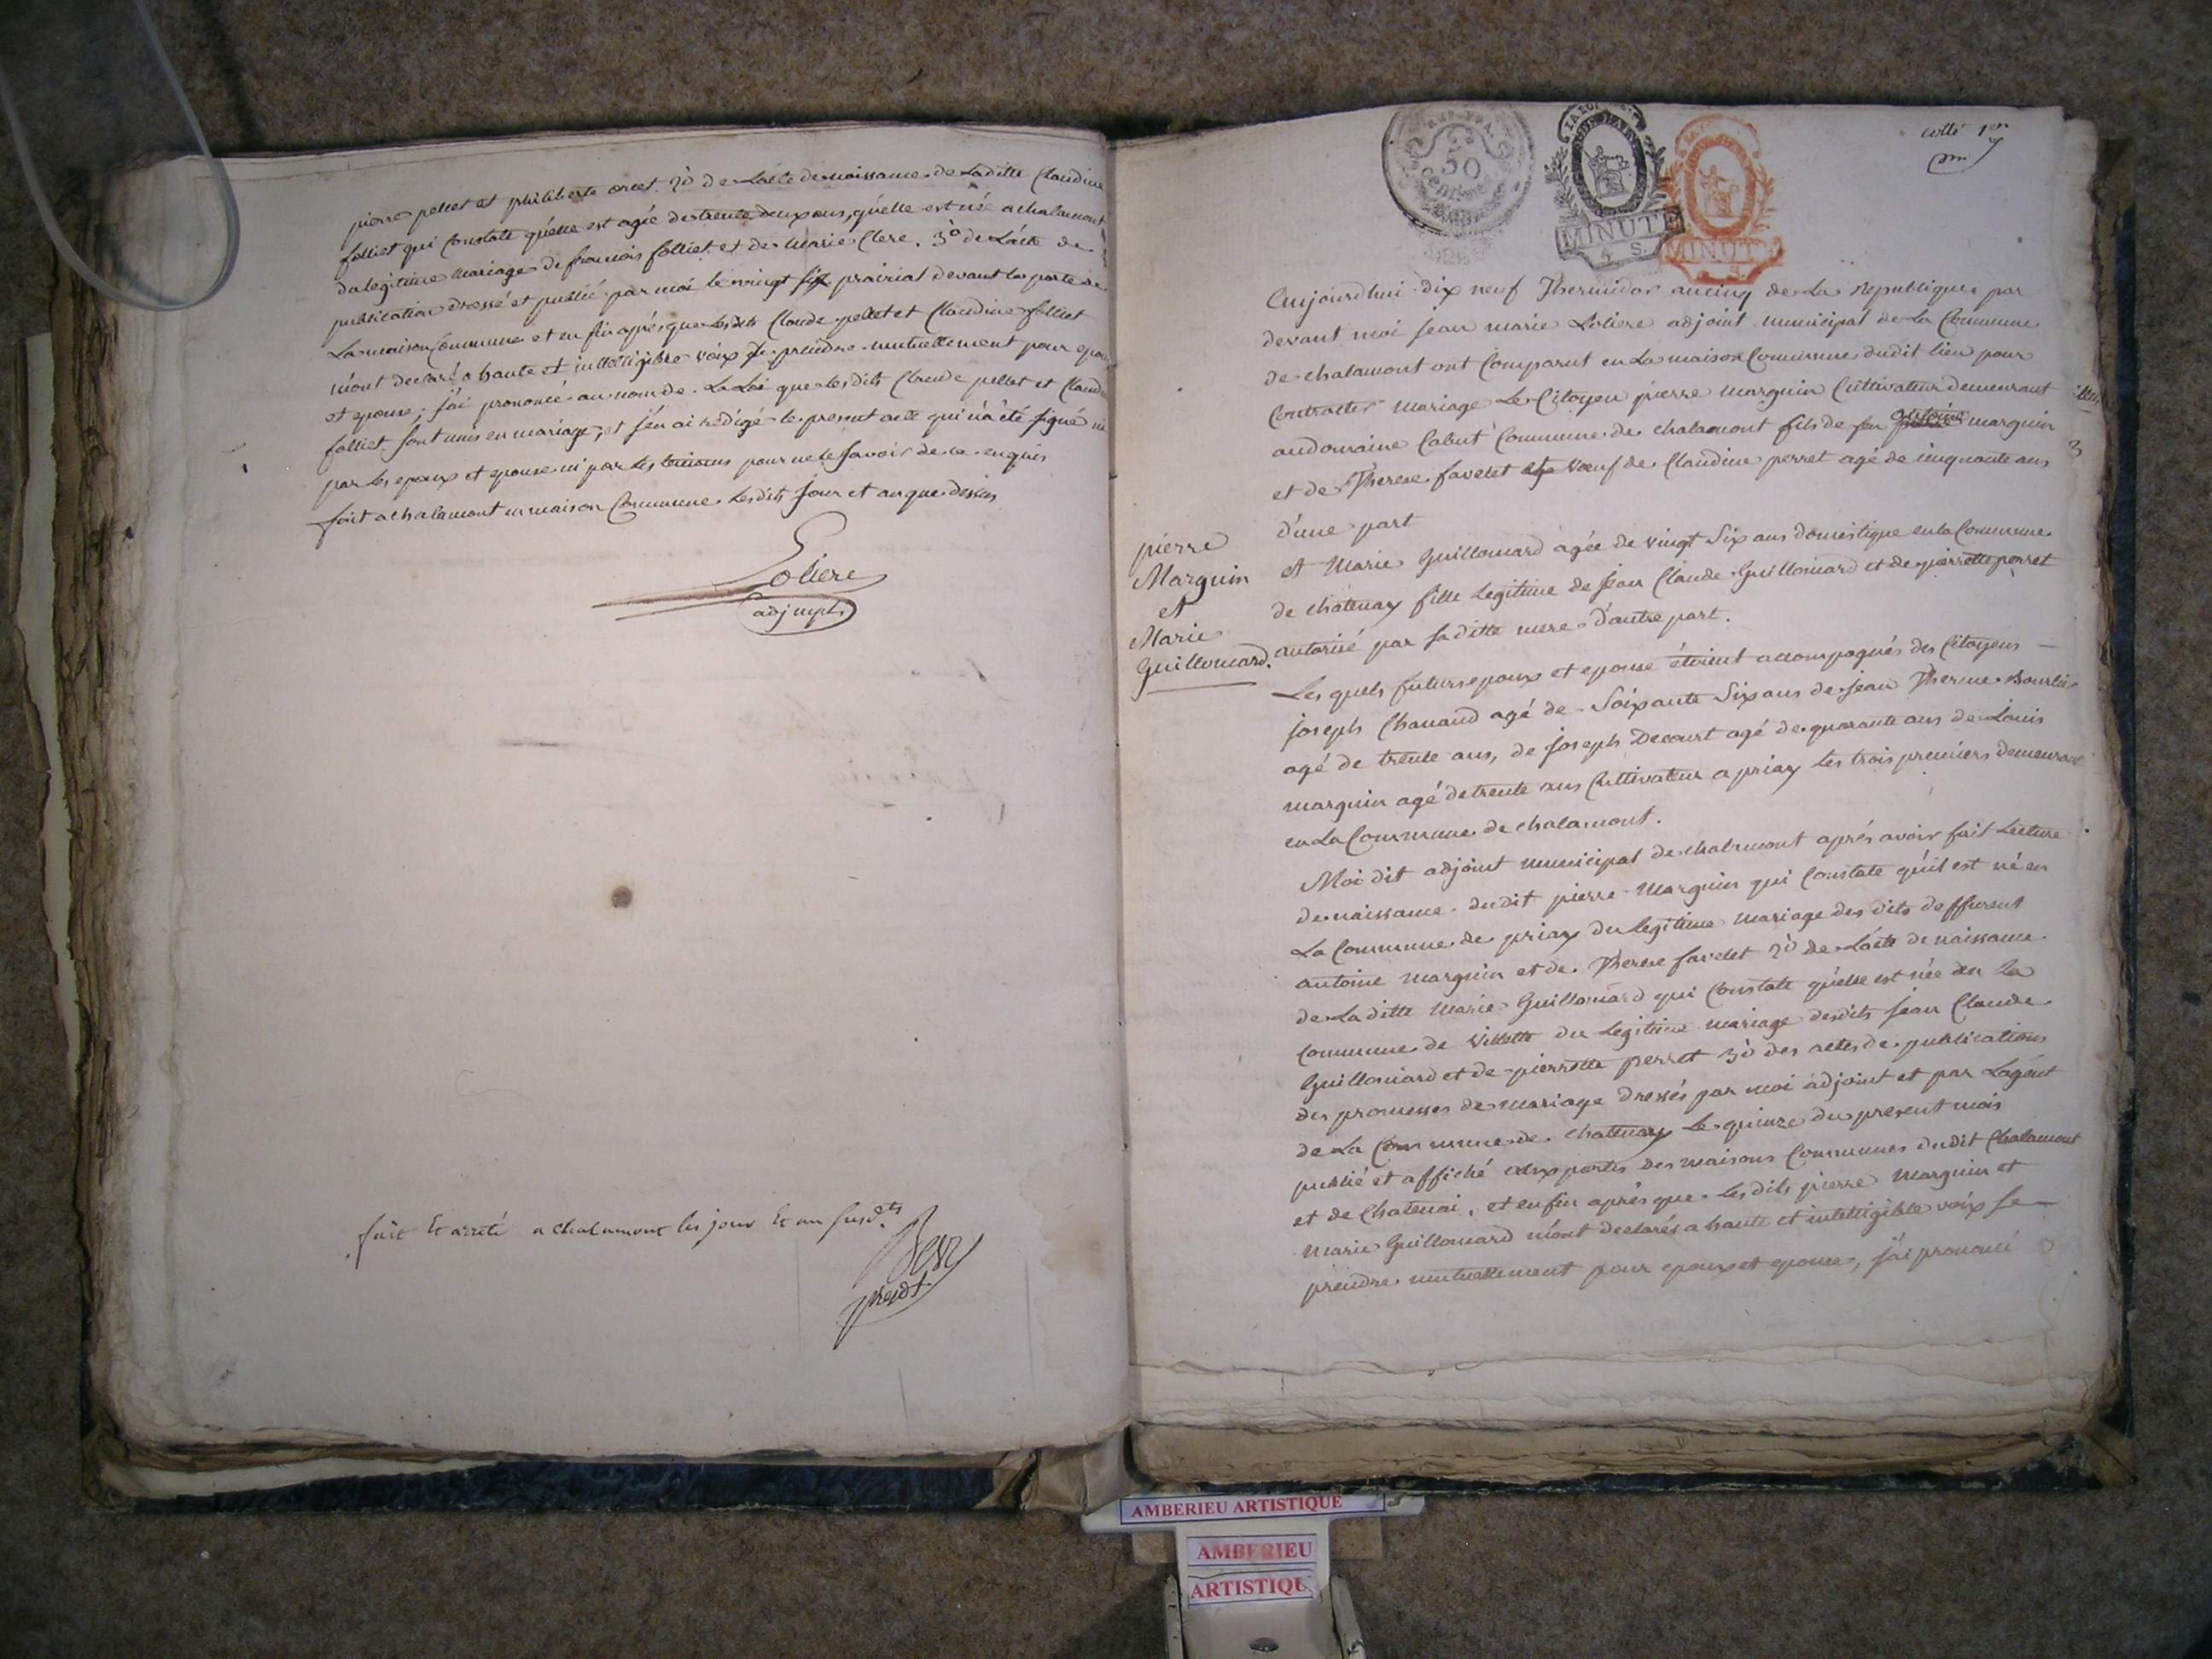 pierre pellet et philiberte orcet 2º de Lacte de naissance de Laditte Claudine
folliet qui Constate qu'elle est agée de trente deux ans, qu'elle est née a chalamont
du legitime mariage de francois folliet et de Marie Clere. 3º de L'acte de
publication dressé et publié par moi le vingt six prairial devant la porte de
La maison Commune et en fin aprés que les dits Claude pellet et Claudine folliet
m'ont declaré a haute et intelligible voix se prendre mutuellement pour epoux
et epouse; j'ai prononcé au nom de La Loi que les dits Claude pellet et Claudine
folliet sont unis en mariage, et j'en ai redigé le present acte qui n'a été signé ni
par les epoux et epouse ni par les temoins pour ne le savoir de ce enquis
fait a chalamont en maison Commune les dits jour et an que dessus
Loliere
adj mpl.
fait et arreté a chalamont les jour et an susdts
presdt
cotté 1er
REP. FRA.
50
centimes
MINUTE
4 S.
MINUTE
Aujourdhui dix neuf Thermidor an cinq de la Republique par
devant moi jean marie Loliere adjoint municipal de La Commune
de chalamont ont Comparut en La maison Commune dudit lieu pour
Contracter mariage Le Citoyen pierre marguin Cultivateur demeurant
au domaine Cabut Commune de chalamont fils de feu antoine marguin
et de Therese favelet veuf de Claudine perret agé de cinquante ans
d'une part
pierre
Marguin
et
Marie
Guillomard.
et Marie Guillomard agée de vingt six ans domestique en la Commune
de chatenay fille legitime de jean Claude Guillomard et de pierrette perret
autorisé par sa ditte mere d'autre part.
Les quels futurs epoux et epouse étoient accompagnés des Citoyens
joseph Chanand agé de soixante six ans de jean Therene Bourlie
agé de trente ans, de joseph Decourt agé de quarante ans de Louis
marguin agé de trente ans Cultivateur a priay les trois premiers demeurant
en La Commune de chalamont.
Moi dit adjoint municipal de chalamont aprés avoir fait Lecture
de naissance dudit pierre Marguin qui Constate qu'il est né en
La Commune de priay du legitime mariage des dits deffurent
antoine marguin et de Therese favelet 2º de L'acte de naissance
de La ditte Marie Guillomard qui Constate qu'elle est née en la
Commune de Villette du legitime mariage desdits jean Claude
Guillomard et de pierrette perret 3º des actes de publications
des promesses de mariage dressés par moi adjoint et par Lagent
de La Commune de chatenay le quinze du present mois
publié et affiché aux portes des maisons Communes dudit Chalamont
et de Chatenai, et en fin aprés que les dits pierre Marguin et
Marie Guillomard m'ont declarés a haute et intelligible voix se
prendre mutuellement pour epoux et epouse, j'ai prononcé
AMBERIEU ARTISTIQUE
AMBERIEU
ARTISTIQU